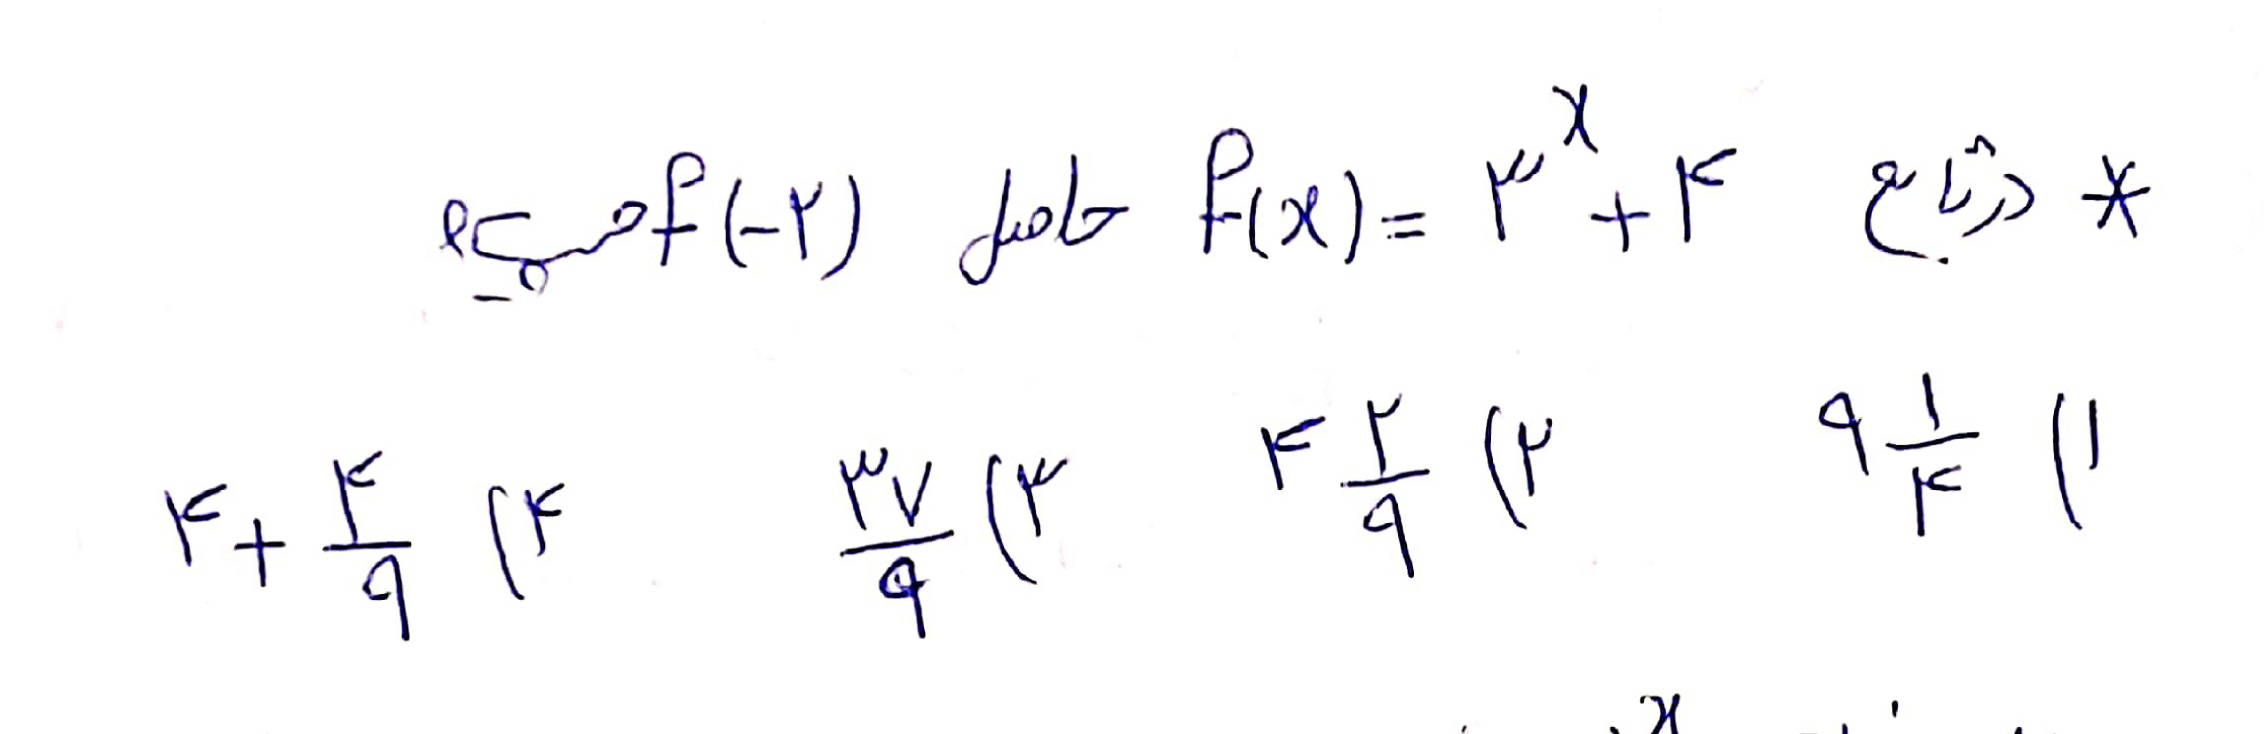 * در تابع f(x) = ۳^x + ۴ حاصل f(-۲) کدام است؟
۱) ۹ ۱/۴ ۲) ۴ ۲/۹ ۳) ۳۷/۹ ۴) ۴ + ۴/۹
x